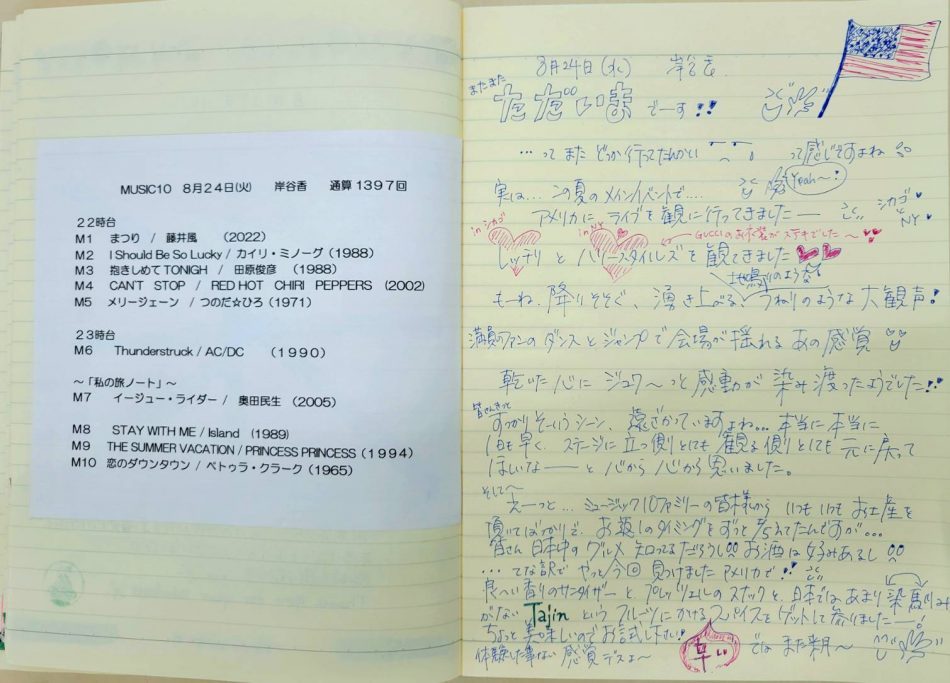 MUSIC10 8月24日(火) 岸谷香 通算1397回
22時台
M1 まつり / 藤井風 (2022)
M2 I Should Be So Lucky / カイリ・ミノーグ (1988)
M3 抱きしめてTONIGH / 田原俊彦 (1988)
M4 CAN'T STOP / RED HOT CHIRI PEPPERS (2002)
M5 メリージェーン / つのだ☆ひろ (1971)
23時台
M6 Thunderstruck / AC/DC (1990)
～「私の旅ノート」～
M7 イージュー・ライダー / 奥田民生 (2005)
M8 STAY WITH ME / Island (1989)
M9 THE SUMMER VACATION / PRINCESS PRINCESS (1994)
M10 恋のダウンタウン / ペトゥラ・クラーク (1965)
8月24日(水) 岸谷香
またまた
ただいま でーす!!
…って また どっか行ってたんかい って感じですよね
実は… この夏のメインイベントで…. Yeah～!
アメリカに ライブを観に行ってきましたー シカゴ NY
in シカゴ in NY GUCCIのお衣装がステキでした～
レッチリ と ハリースタイルズを観てきました
地鳴りのような
もーね、降りそそぐ、湧き上がる、うねりのような大観声!
満員のファンのダンスとジャンプで会場が揺れるあの感覚
乾いた心にジュワ～っと感動が染み渡ったようでした!!
皆さんきっと
すっかりそういうシーン、遠ざかっていますよね… 本当に本当に
1日も早く、ステージに立つ側としても観る側としても元に戻って
ほしいなーーと心から心から思いました。
そして～
えーっと… ミュージック10ファミリーの皆様から いつもいつもお土産を
頂いてばかりで、お返しのタイミングをずっと考えてたんですが…
皆さん日本中のグルメ知ってるだろうし!! お酒は好みあるし!!
… てな訳で やっと今回 見つけました アメリカで!!
良い香りのサニタイザーと プレッツェルのスナックと、日本ではあまり馴染み
がない Tajin というフルーツにかけるスパイスをゲットして参りましたー!
ちょっと美味しいのでお試し下さい!
体験した事ない感覚デスよ～ 辛い では また来月～